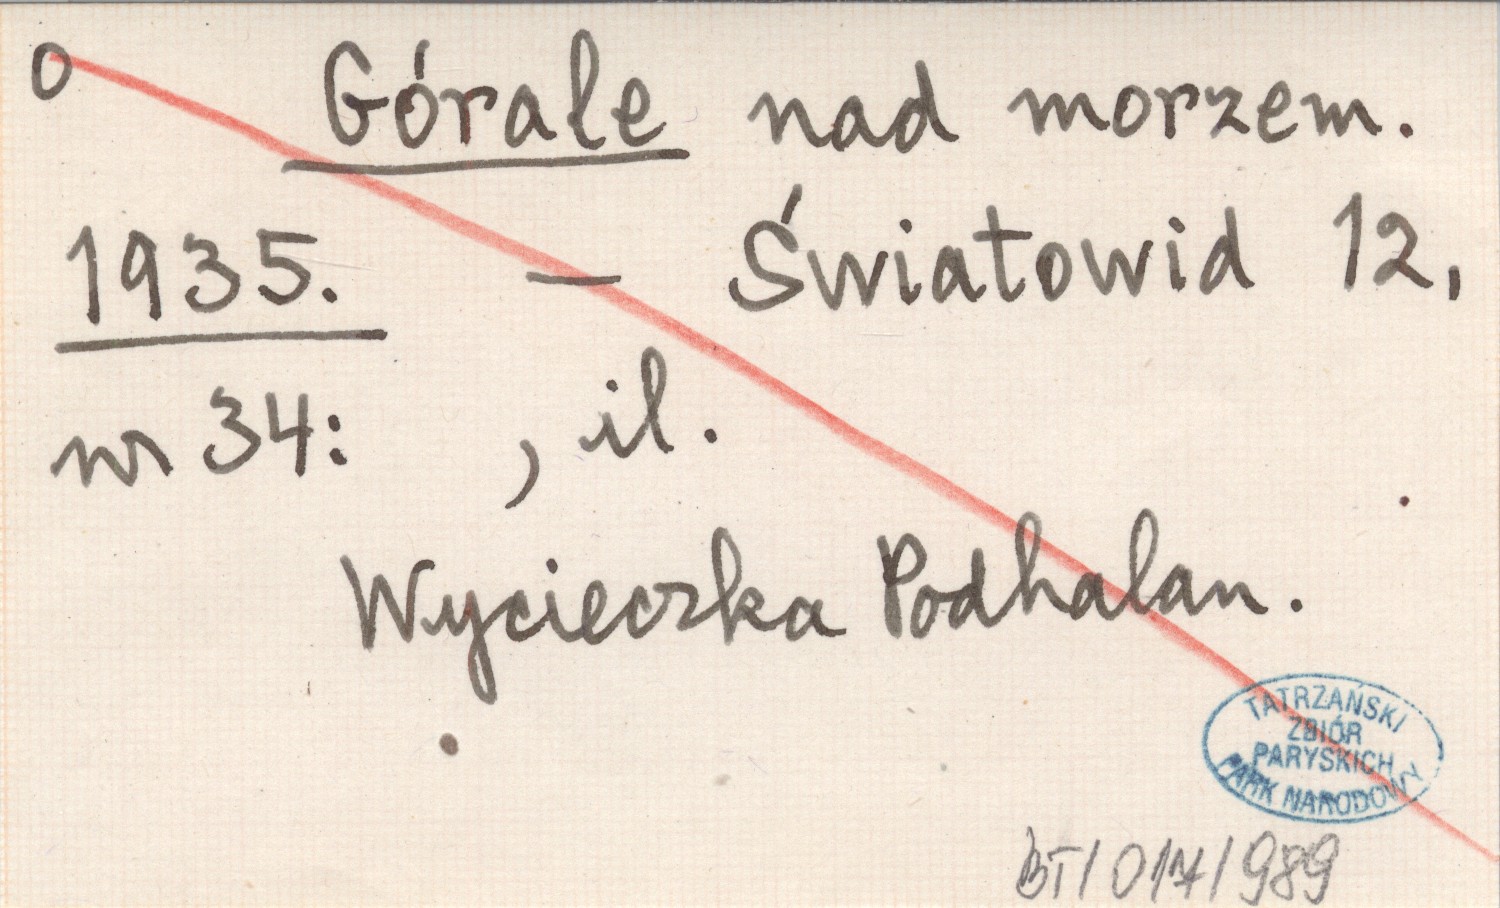 O Górale nad morzem.
1935. — Światowid 12,
nr 34: , il.
Wycieczka Podhalan.
TATRZAŃSKI
ZBIÓR
PARYSKICH
PARK NARODOWY
BT/017/989